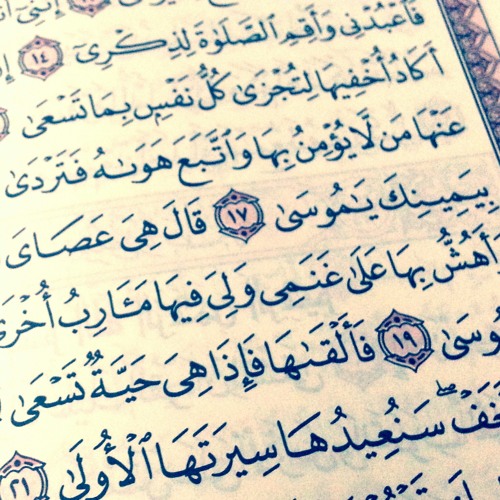 إِنَّنِىٓ
فَٱعْبُدْنِى وَأَقِمِ ٱلصَّلَوٰةَ لِذِكْرِىٓ ١٤
أَكَادُ أُخْفِيهَا لِتُجْزَىٰ كُلُّ نَفْسٍۭ بِمَا تَسْعَىٰ
عَنْهَا مَن لَّا يُؤْمِنُ بِهَا وَٱتَّبَعَ هَوَىٰهُ فَتَرْدَىٰ
بِيَمِينِكَ يَٰمُوسَىٰ ١٧ قَالَ هِىَ عَصَاىَ
وَأَهُشُّ بِهَا عَلَىٰ غَنَمِى وَلِىَ فِيهَا مَـَٔارِبُ أُخْرَىٰ
مُوسَىٰ ١٩ فَأَلْقَىٰهَا فَإِذَا هِىَ حَيَّةٌ تَسْعَىٰ
تَخَفْ ۖ سَنُعِيدُهَا سِيرَتَهَا ٱلْأُولَىٰ ٢١